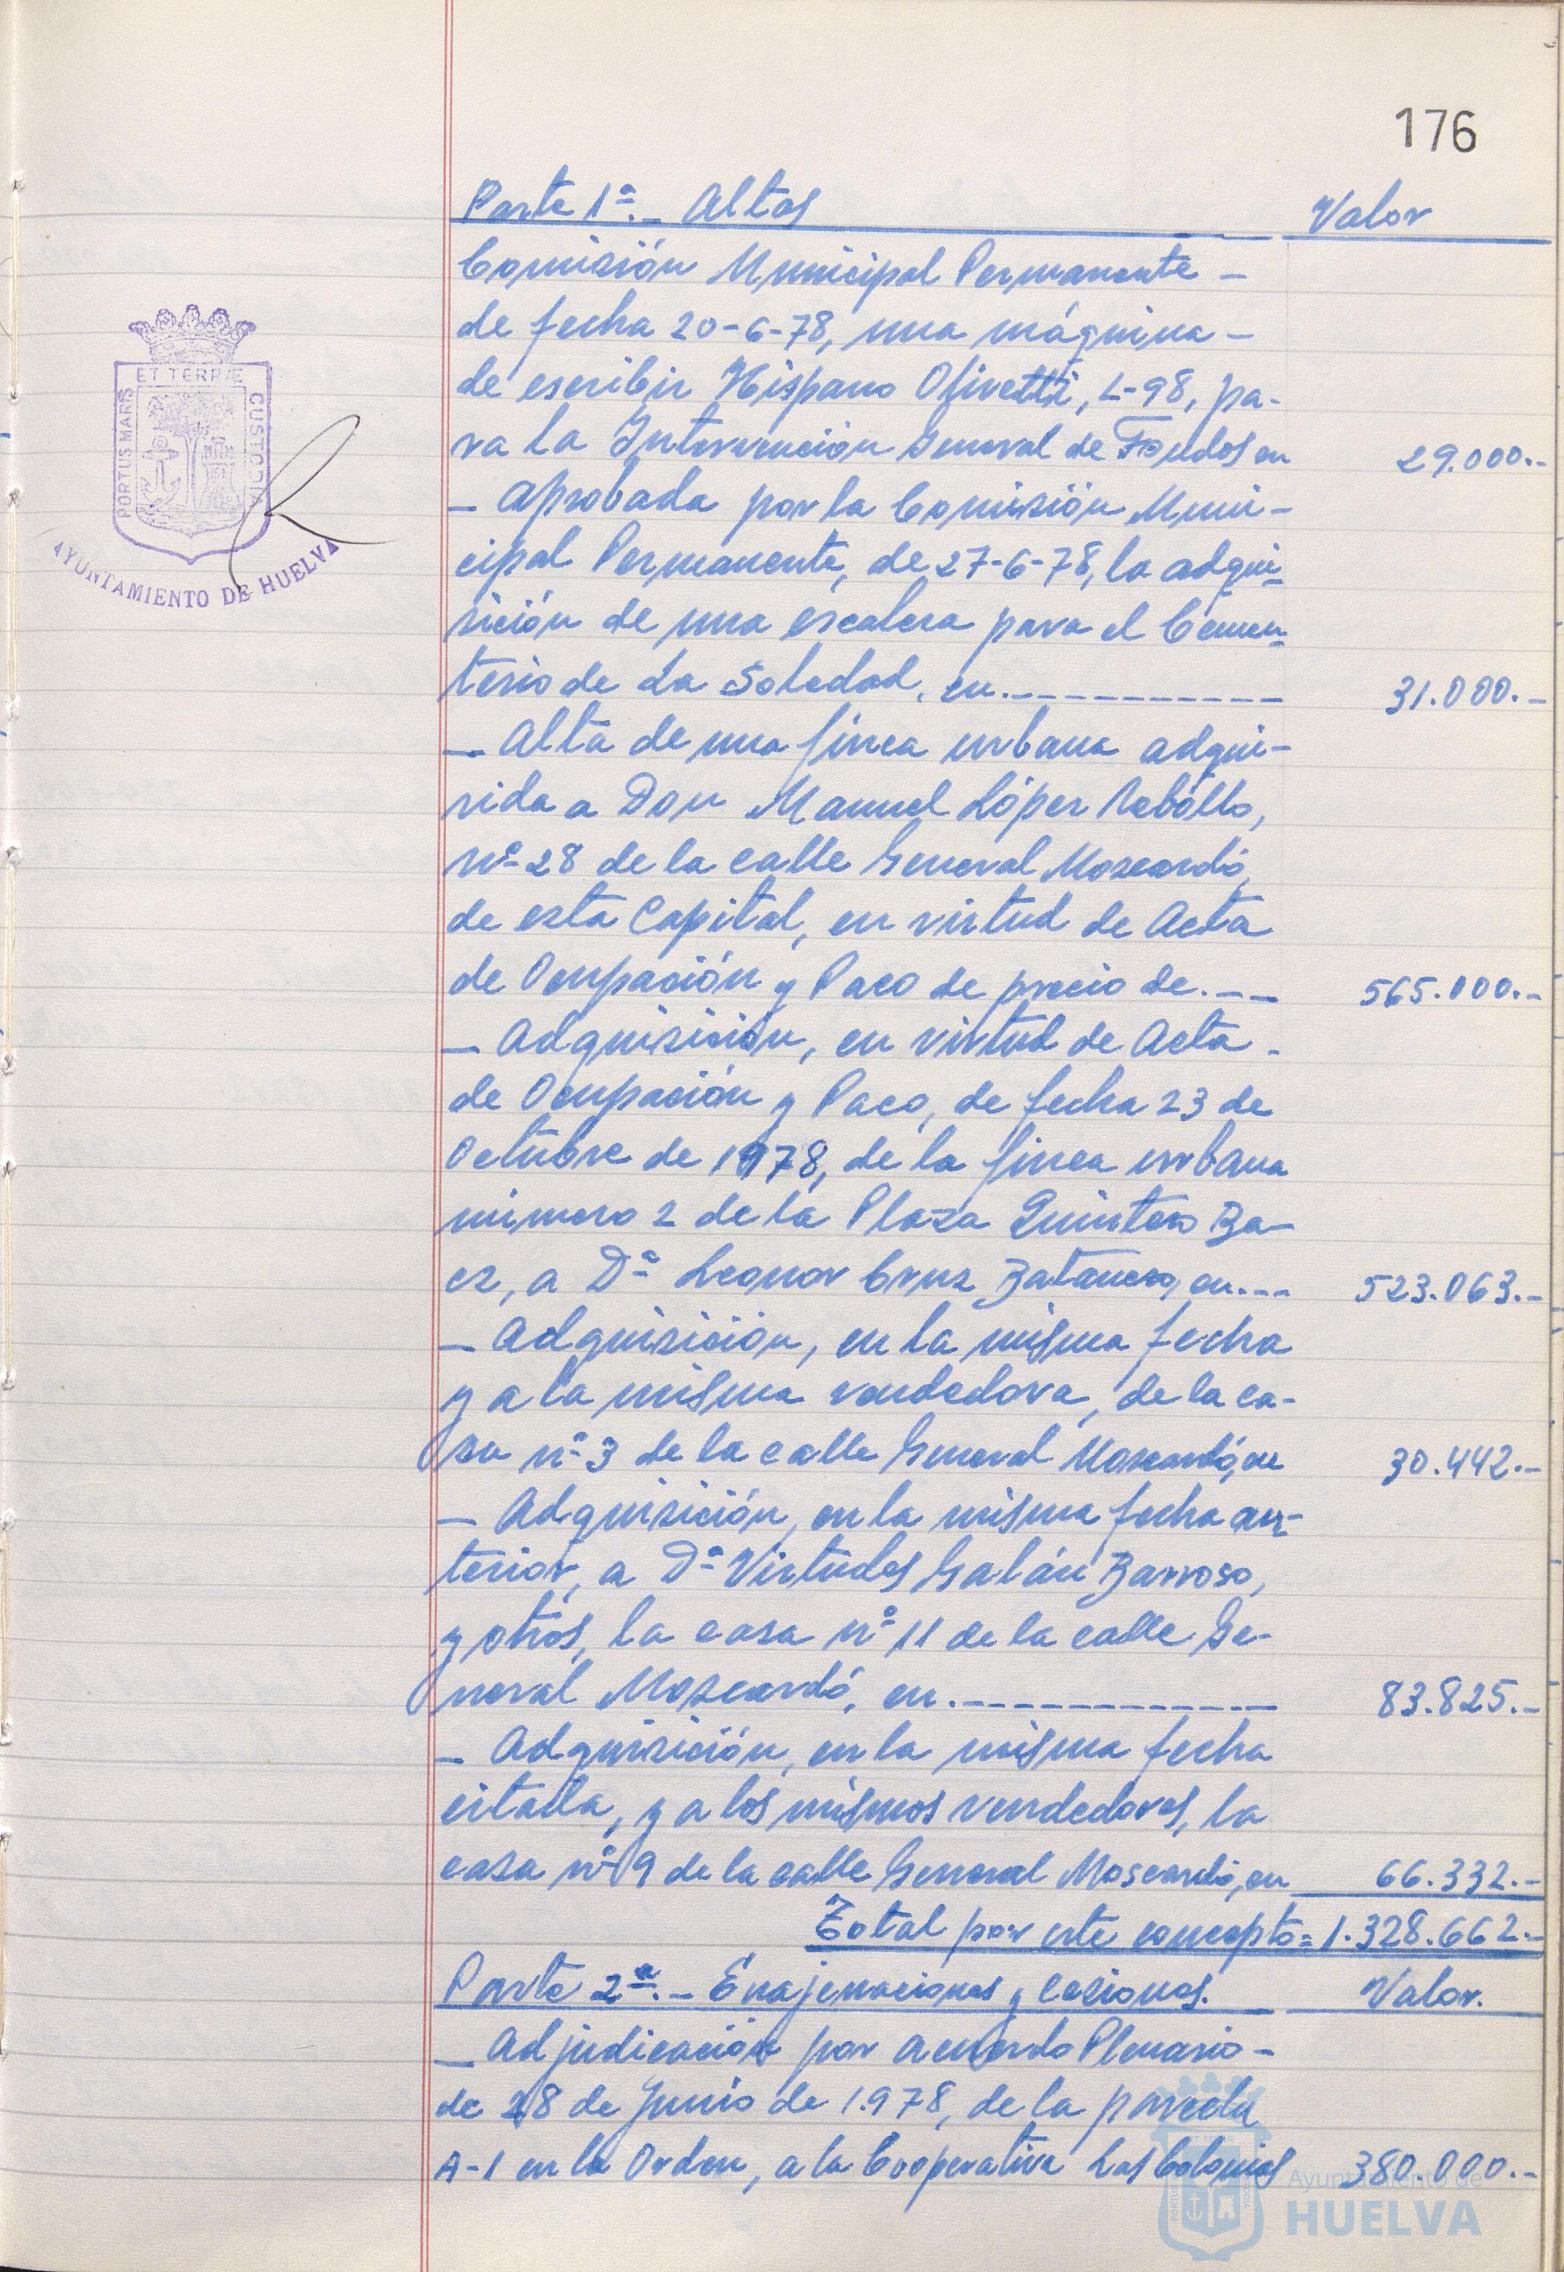 176
Parte 1ª.- Altas Valor
Comisión Municipal Permanente -
de fecha 20-6-78, una máquina -
de escribir Hispano Olivetti, L-98, pa-
ra la Intervención General de Fondos en 29.000.-
- Aprobada por la Comisión Muni-
cipal Permanente, de 27-6-78, la adqui-
sición de una escalera para el Cemen-
terio de La Soledad, en.---------- 31.000.-
- Alta de una finca urbana adqui-
rida a Don Manuel López Rebollo,
nº 28 de la calle General Moscardó,
de esta Capital, en virtud de Acta
de Ocupación y Pago de precio de.--- 565.000.-
- Adquisición, en virtud de Acta -
de Ocupación y Pago, de fecha 23 de
Octubre de 1978, de la finca urbana
número 2 de la Plaza Quintero Ba-
ez, a Dª Leonor Cruz Batanero, en.--- 523.063.-
- Adquisición, en la misma fecha
y a la misma vendedora, de la ca-
sa nº 3 de la calle General Moscardó, en 30.442.-
- Adquisición, en la misma fecha an-
terior, a Dª Virtudes Galán Barroso,
y otros, la casa nº 11 de la calle Ge-
neral Moscardó, en.------------- 83.825.-
- Adquisición, en la misma fecha
citada, y a los mismos vendedores, la
casa nº 9 de la calle General Moscardó, en 66.332.-
Total por este concepto= 1.328.662.-
Parte 2ª.- Enajenaciones y cesiones. Valor.
- Adjudicación por acuerdo Plenario -
de 28 de Junio de 1.978, de la parcela
A-1 en la Orden, a la Cooperativa Las Colonias 380.000.-
PORTUS MARIS ET TERRÆ CUSTODIA
AYUNTAMIENTO DE HUELVA
Ayuntamiento de
HUELVA